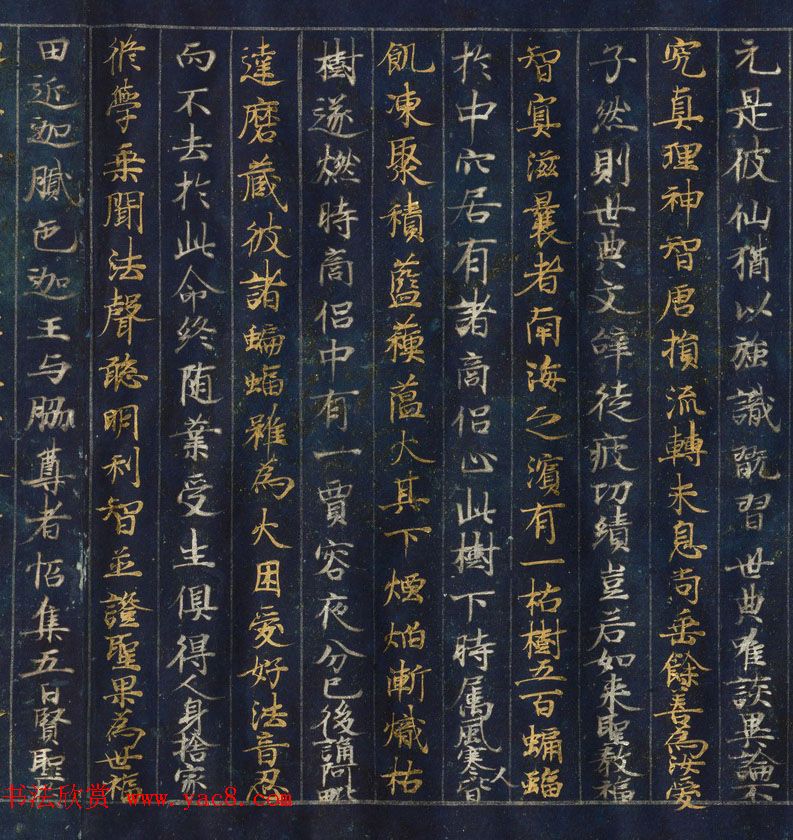 元是彼仙猶以強識翫習世典唯談異論不
究真理神智唐損流轉未息尚垂餘善為汝愛
子然則世典文辝徒疲功績豈若如来聖教福
智寘滋曩者南海之濱有一枯樹五百蝙蝠
於中穴居有諸商侶止此樹下時属風寒人皆
飢凍聚積藍蘓薀火其下煙焰漸熾枯
樹遂燃時商侶中有一賈客夜分已後誦阿毗
達磨藏彼諸蝙蝠雖為火困愛好法音忍
而不去於此命終随業受生俱得人身捨家
修學乗聞法聲聡明利智並證聖果為世福
田近迦膩色迦王与脇尊者招集五百賢聖
书法欣赏 www.yac8.com